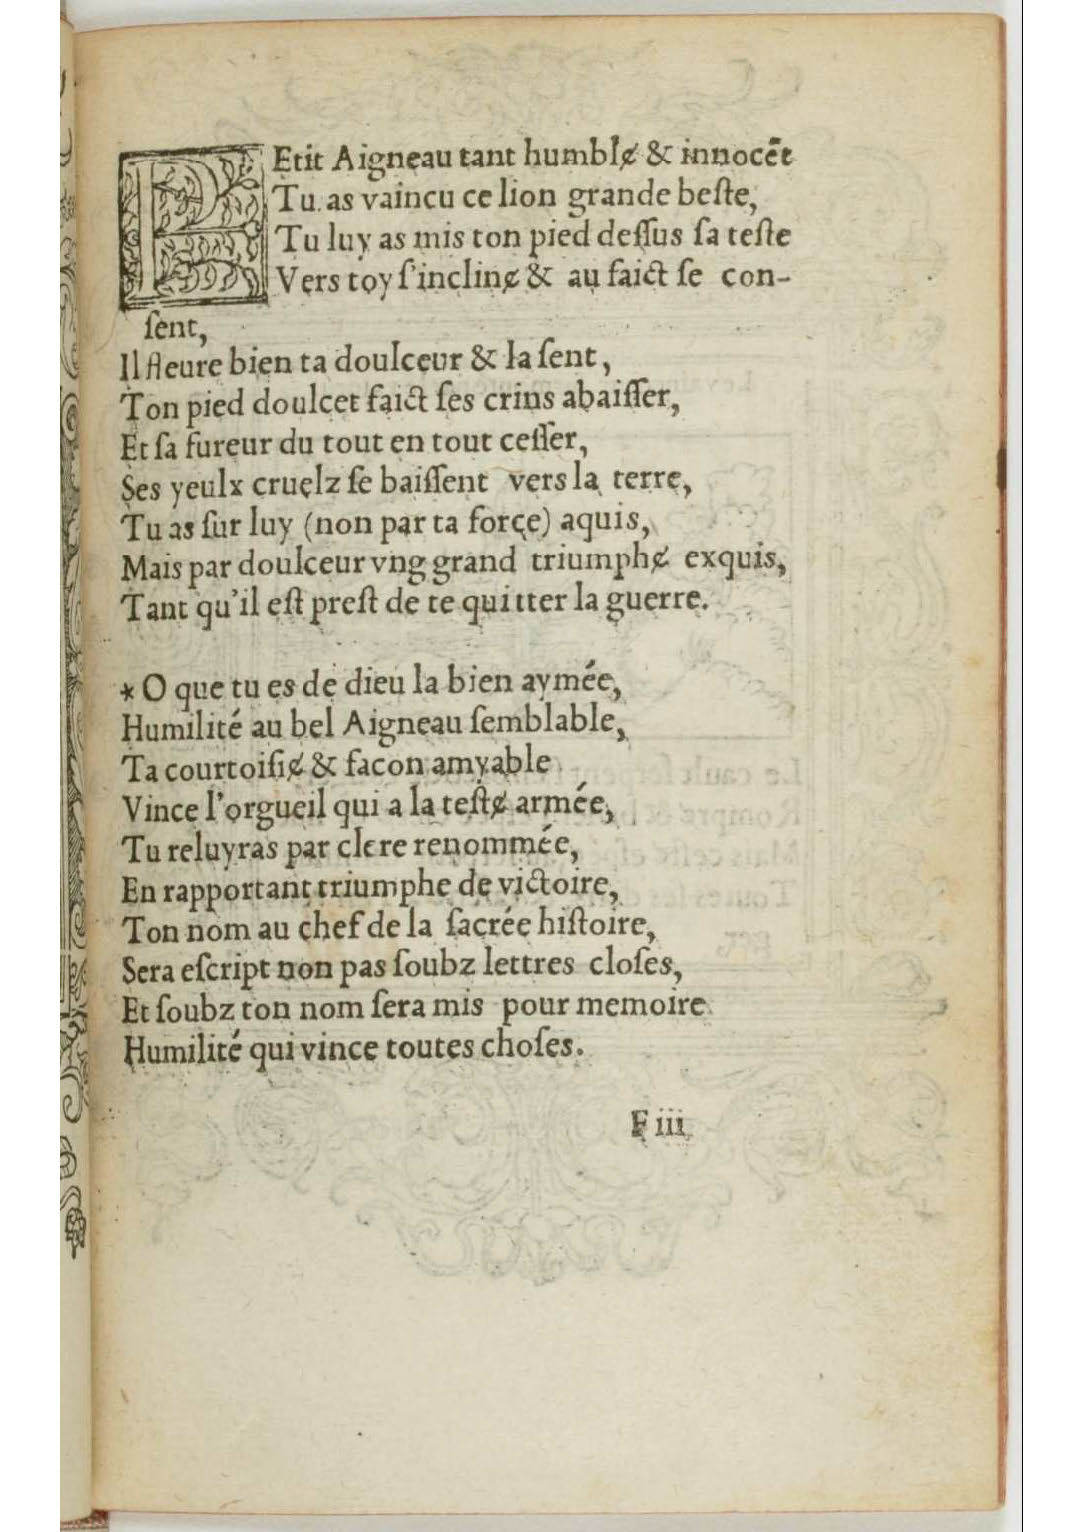 PEtit Aigneau tant humblɇ & innocẽt
Tu as vaincu ce lion grande beſte,
Tu luy as mis ton pied deſſus ſa teſte
Vers toy ſ'inclinɇ & au faict ſe con-
ſent,
Il fleure bien ta doulceur & la ſent,
Ton pied doulcet faict ſes crins abaiſſer,
Et ſa fureur du tout en tout ceſſer,
Ses yeulx cruelz ſe baiſſent vers la terre,
Tu as ſur luy (non par ta force) aquis,
Mais par doulceur vng grand triumphɇ exquis,
Tant qu'il eſt preſt de te quitter la guerre.
* O que tu es de dieu la bien aymée,
Humilité au bel Aigneau ſemblable,
Ta courtoiſiɇ & facon amyable
Vince l'orgueil qui a la teſtɇ armée,
Tu reluyras par clere renommée,
En rapportant triumphe de victoire,
Ton nom au chef de la ſacrée hiſtoire,
Sera eſcript non pas ſoubz lettres cloſes,
Et ſoubz ton nom ſera mis pour memoire
Humilité qui vince toutes choſes.
F iii